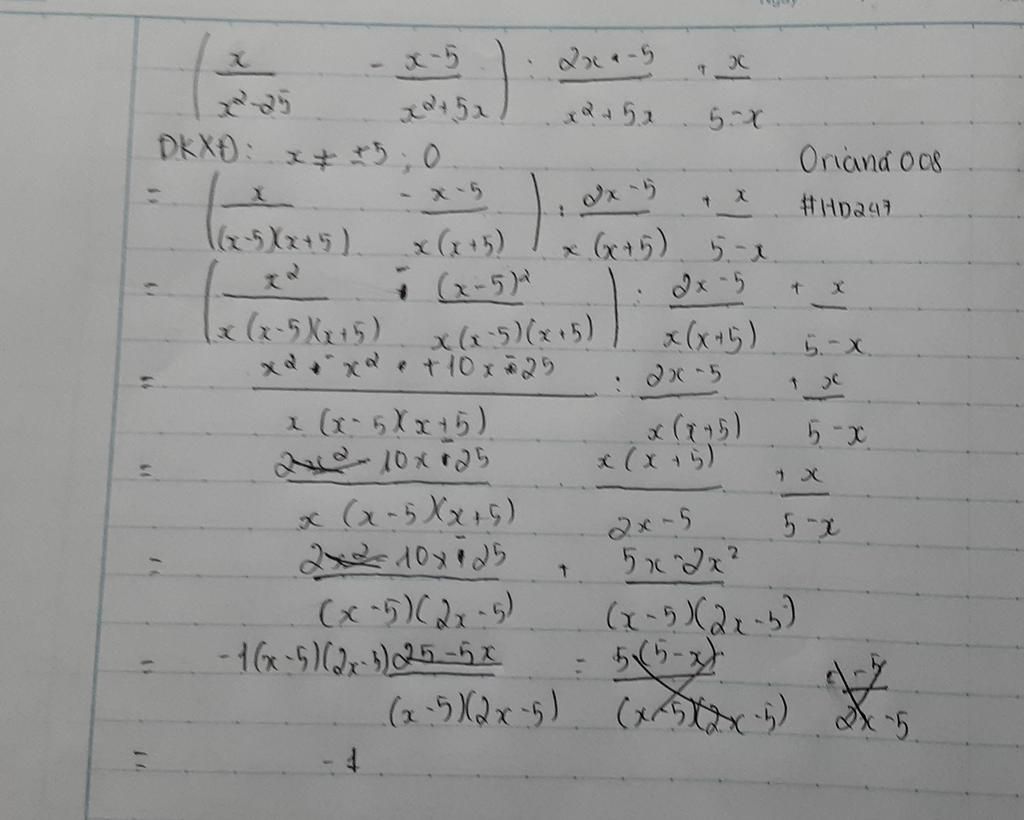 Ngày
( x/(x²-25) - (x-5)/(x²+5x) ) : (2x-5)/(x²+5x) + x/(5-x)
ĐKXĐ: x ≠ ±5 ; 0
Oriana008
= ( x/((x-5)(x+5)) - (x-5)/(x(x+5)) ) : (2x-5)/(x(x+5)) + x/(5-x)
#HD247
= ( x²/(x(x-5)(x+5)) - (x-5)²/(x(x-5)(x+5)) ) : (2x-5)/(x(x+5)) + x/(5-x)
= (x² - x² + 10x - 25)/(x(x-5)(x+5)) : (2x-5)/(x(x+5)) + x/(5-x)
= (10x-25)/(x(x-5)(x+5)) . x(x+5)/(2x-5) + x/(5-x)
= (10x-25)/((x-5)(2x-5)) + (5x-2x²)/((x-5)(2x-5))
= -1(x-5)(2x-5) (25-5x)/((x-5)(2x-5)) = 5(5-x)/((x-5)(2x-5)) -5/(2x-5)
= -1